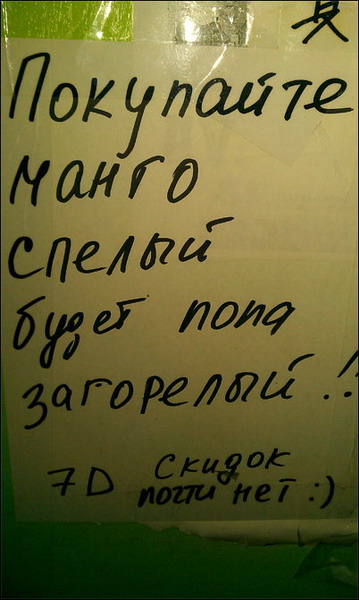 Покупайте
манго
спелый
будет попа
загорелый!!
7D Скидок
почти нет :)